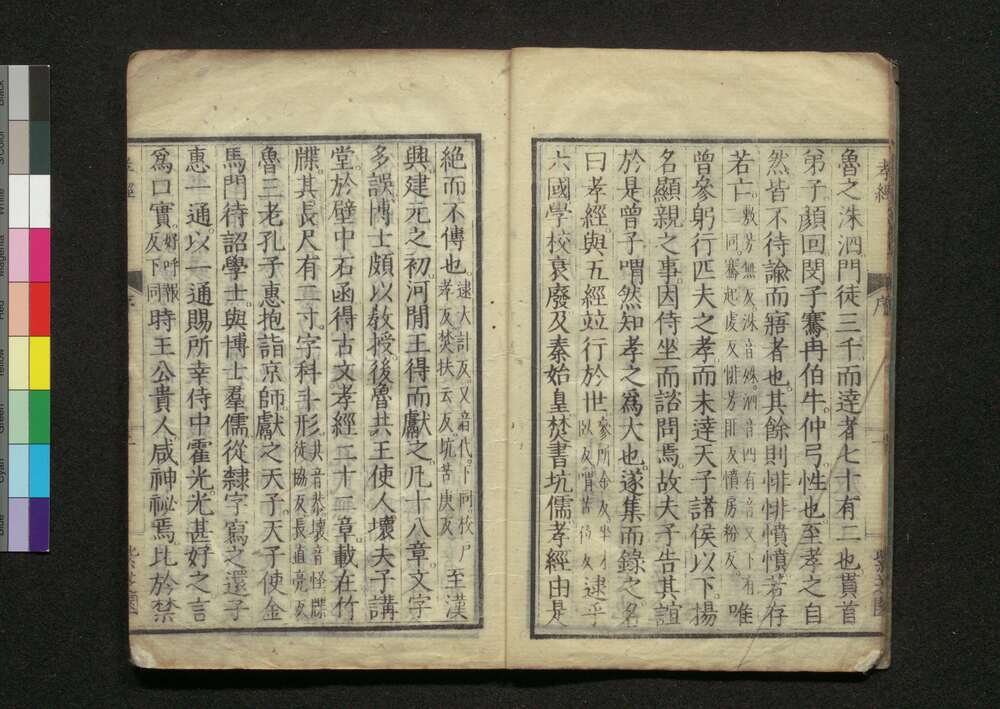 孝經
序
紫芝園
魯之洙泗門徒三千而達者七十有二也貫首
弟子顏回閔子騫冉伯牛仲弓性也至孝之自
然皆不待諭而寤者也其餘則悱悱憤憤若存
若亡數芳無反洙音殊泗音四有音又下有二同騫起虔反悱芳匪反憤房粉反唯
曾參躬行匹夫之孝而未達天子諸侯以下揚
名顯親之事因侍坐而諮問焉故夫子告其誼
於是曾子喟然知孝之爲大也遂集而錄之名
曰孝經與五經竝行於世參所金反坐才臥反喟苦位反逮乎
六國學校衰廢及秦始皇焚書坑儒孝經由是
絶而不傳也逮大計反又音代下同校戸孝反焚扶云反坑苦庚反至漢
興建元之初河閒王得而獻之凡十八章文字
多誤博士頗以敎授後魯共王使人壞夫子講
堂於壁中石函得古文孝經二十二章載在竹
牒其長尺有二寸字科斗形共音恭壞音怪牒徒協反長直亮反
魯三老孔子惠抱詣京師獻之天子天子使金
馬門待詔學士與博士羣儒從隸字寫之還子
惠一通以一通賜所幸侍中霍光光甚好之言
爲口實好呼報反下同時王公貴人咸神祕焉比於禁
孝經
序
紫芝園